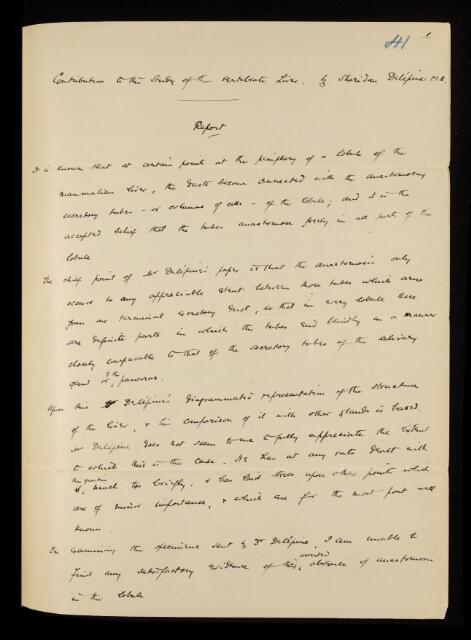 41
1
Contribution to the Study of the vertebrate Liver. by Sheridan Delépine M.B.
Report.
It is known that at certain points at the periphery of a lobule of the
mammalian liver, the ducts become connected with the anastomosing
secretory tubes - or columns of cells - of the lobule; and it is the
accepted belief that the tubes anastomose freely in all parts of the
lobule
The chief point of Mr Delépine's paper is that the anastomosis only
occurs to any appreciable extent between those tubes which arise
from one terminal secretory duct, so that in every lobule there
are definite parts in which the tubes end blindly in a manner
closely comparable to that of the secretory tubes of the salivary
gland or of the pancreas.
Upon this Dr Delépine's diagrammatic representation of the structure
of the liver, & his comparison of it with other glands is based.
Mr Delépine does not seem to me to fully appreciate the extent
to which this is the case - He has at any rate dealt with
this question much too briefly, & has laid stress upon other points which
are of minor importance, & which are for the most part well
known.
On examining the specimens sent by Dr Delépine, I am unable to
find any satisfactory evidence of this asserted absence of anastomosis
in the lobule